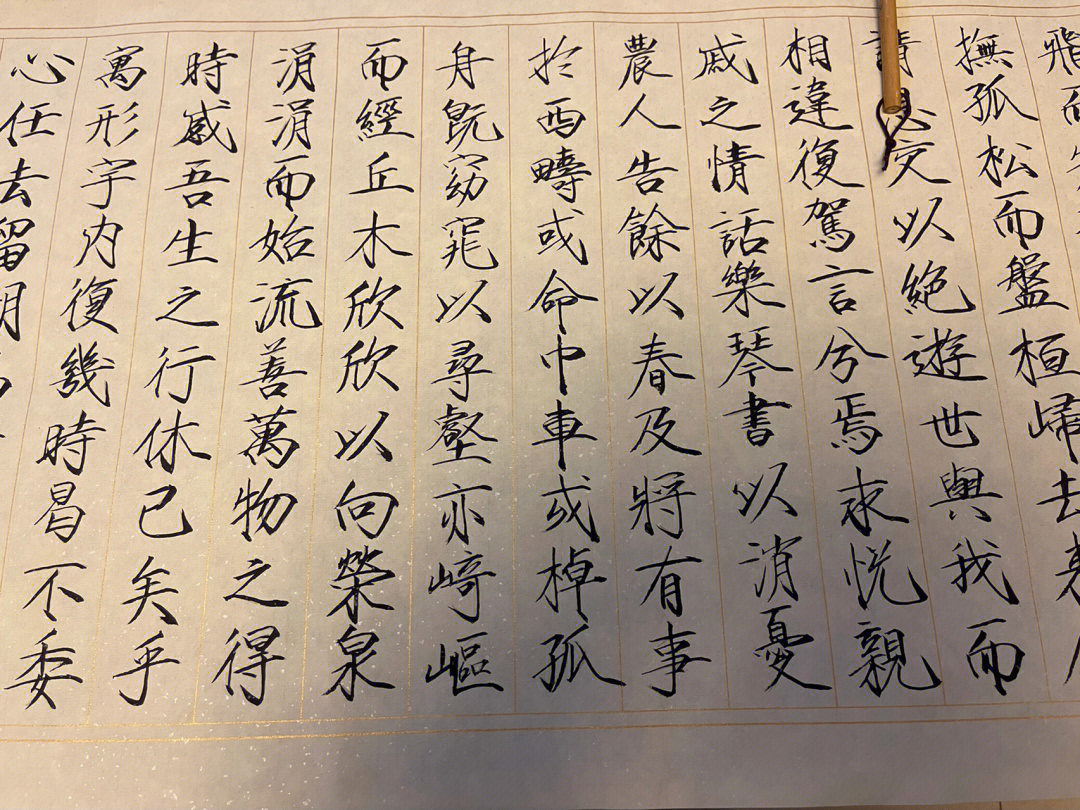 飛而
撫孤松而盤桓歸去
請息交以絕遊世與我而
相違復駕言兮焉求悅親
戚之情話樂琴書以消憂
農人告餘以春及將有事
於西疇或命巾車或棹孤
舟既窈窕以尋壑亦崎嶇
而經丘木欣欣以向榮泉
涓涓而始流善萬物之得
時感吾生之行休已矣乎
寓形宇內復幾時曷不委
心任去留胡